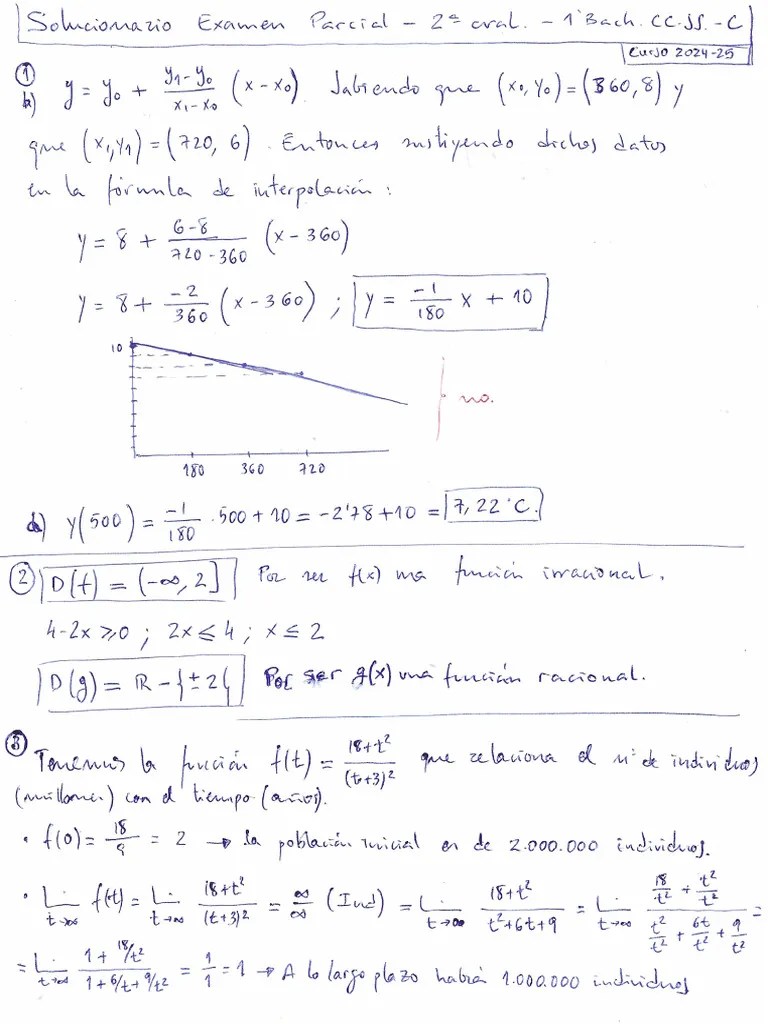 Solucionario Examen Parcial - 2ª eval. - 1º Bach. CC.SS. - C
Curso 2024-25
① b) y = y₀ + (y₁-y₀)/(x₁-x₀) (x-x₀). Sabiendo que (x₀,y₀) = (360, 8) y
que (x₁,y₁) = (720, 6). Entonces sustiyendo dichos datos
en la fórmula de interpolación:
y = 8 + (6-8)/(720-360) (x-360)
y = 8 + (-2)/360 (x-360) ; y = -1/180 x + 10
10
no.
180 360 720
a) y(500) = -1/180 · 500 + 10 = -2'78 + 10 = 7,22 °C.
② D(f) = (-∞, 2] Por ser f(x) una función irracional.
4-2x ≥ 0 ; 2x ≤ 4 ; x ≤ 2
D(g) = R - {±2} Por ser g(x) una función racional.
③ Tenemos la función f(t) = (18+t²)/(t+3)² que relaciona el nº de individuos
(millones) con el tiempo (años).
• f(0) = 18/9 = 2 → la población inicial es de 2.000.000 individuos.
• Lim t→∞ f(t) = Lim t→∞ (18+t²)/(t+3)² = ∞/∞ (Ind) = Lim t→∞ (18+t²)/(t²+6t+9) = Lim t→∞ (18/t² + t²/t²)/(t²/t² + 6t/t² + 9/t²) =
= Lim t→∞ (1 + 18/t²)/(1 + 6/t + 9/t²) = 1/1 = 1 → A lo largo plazo habrán 1.000.000 individuos